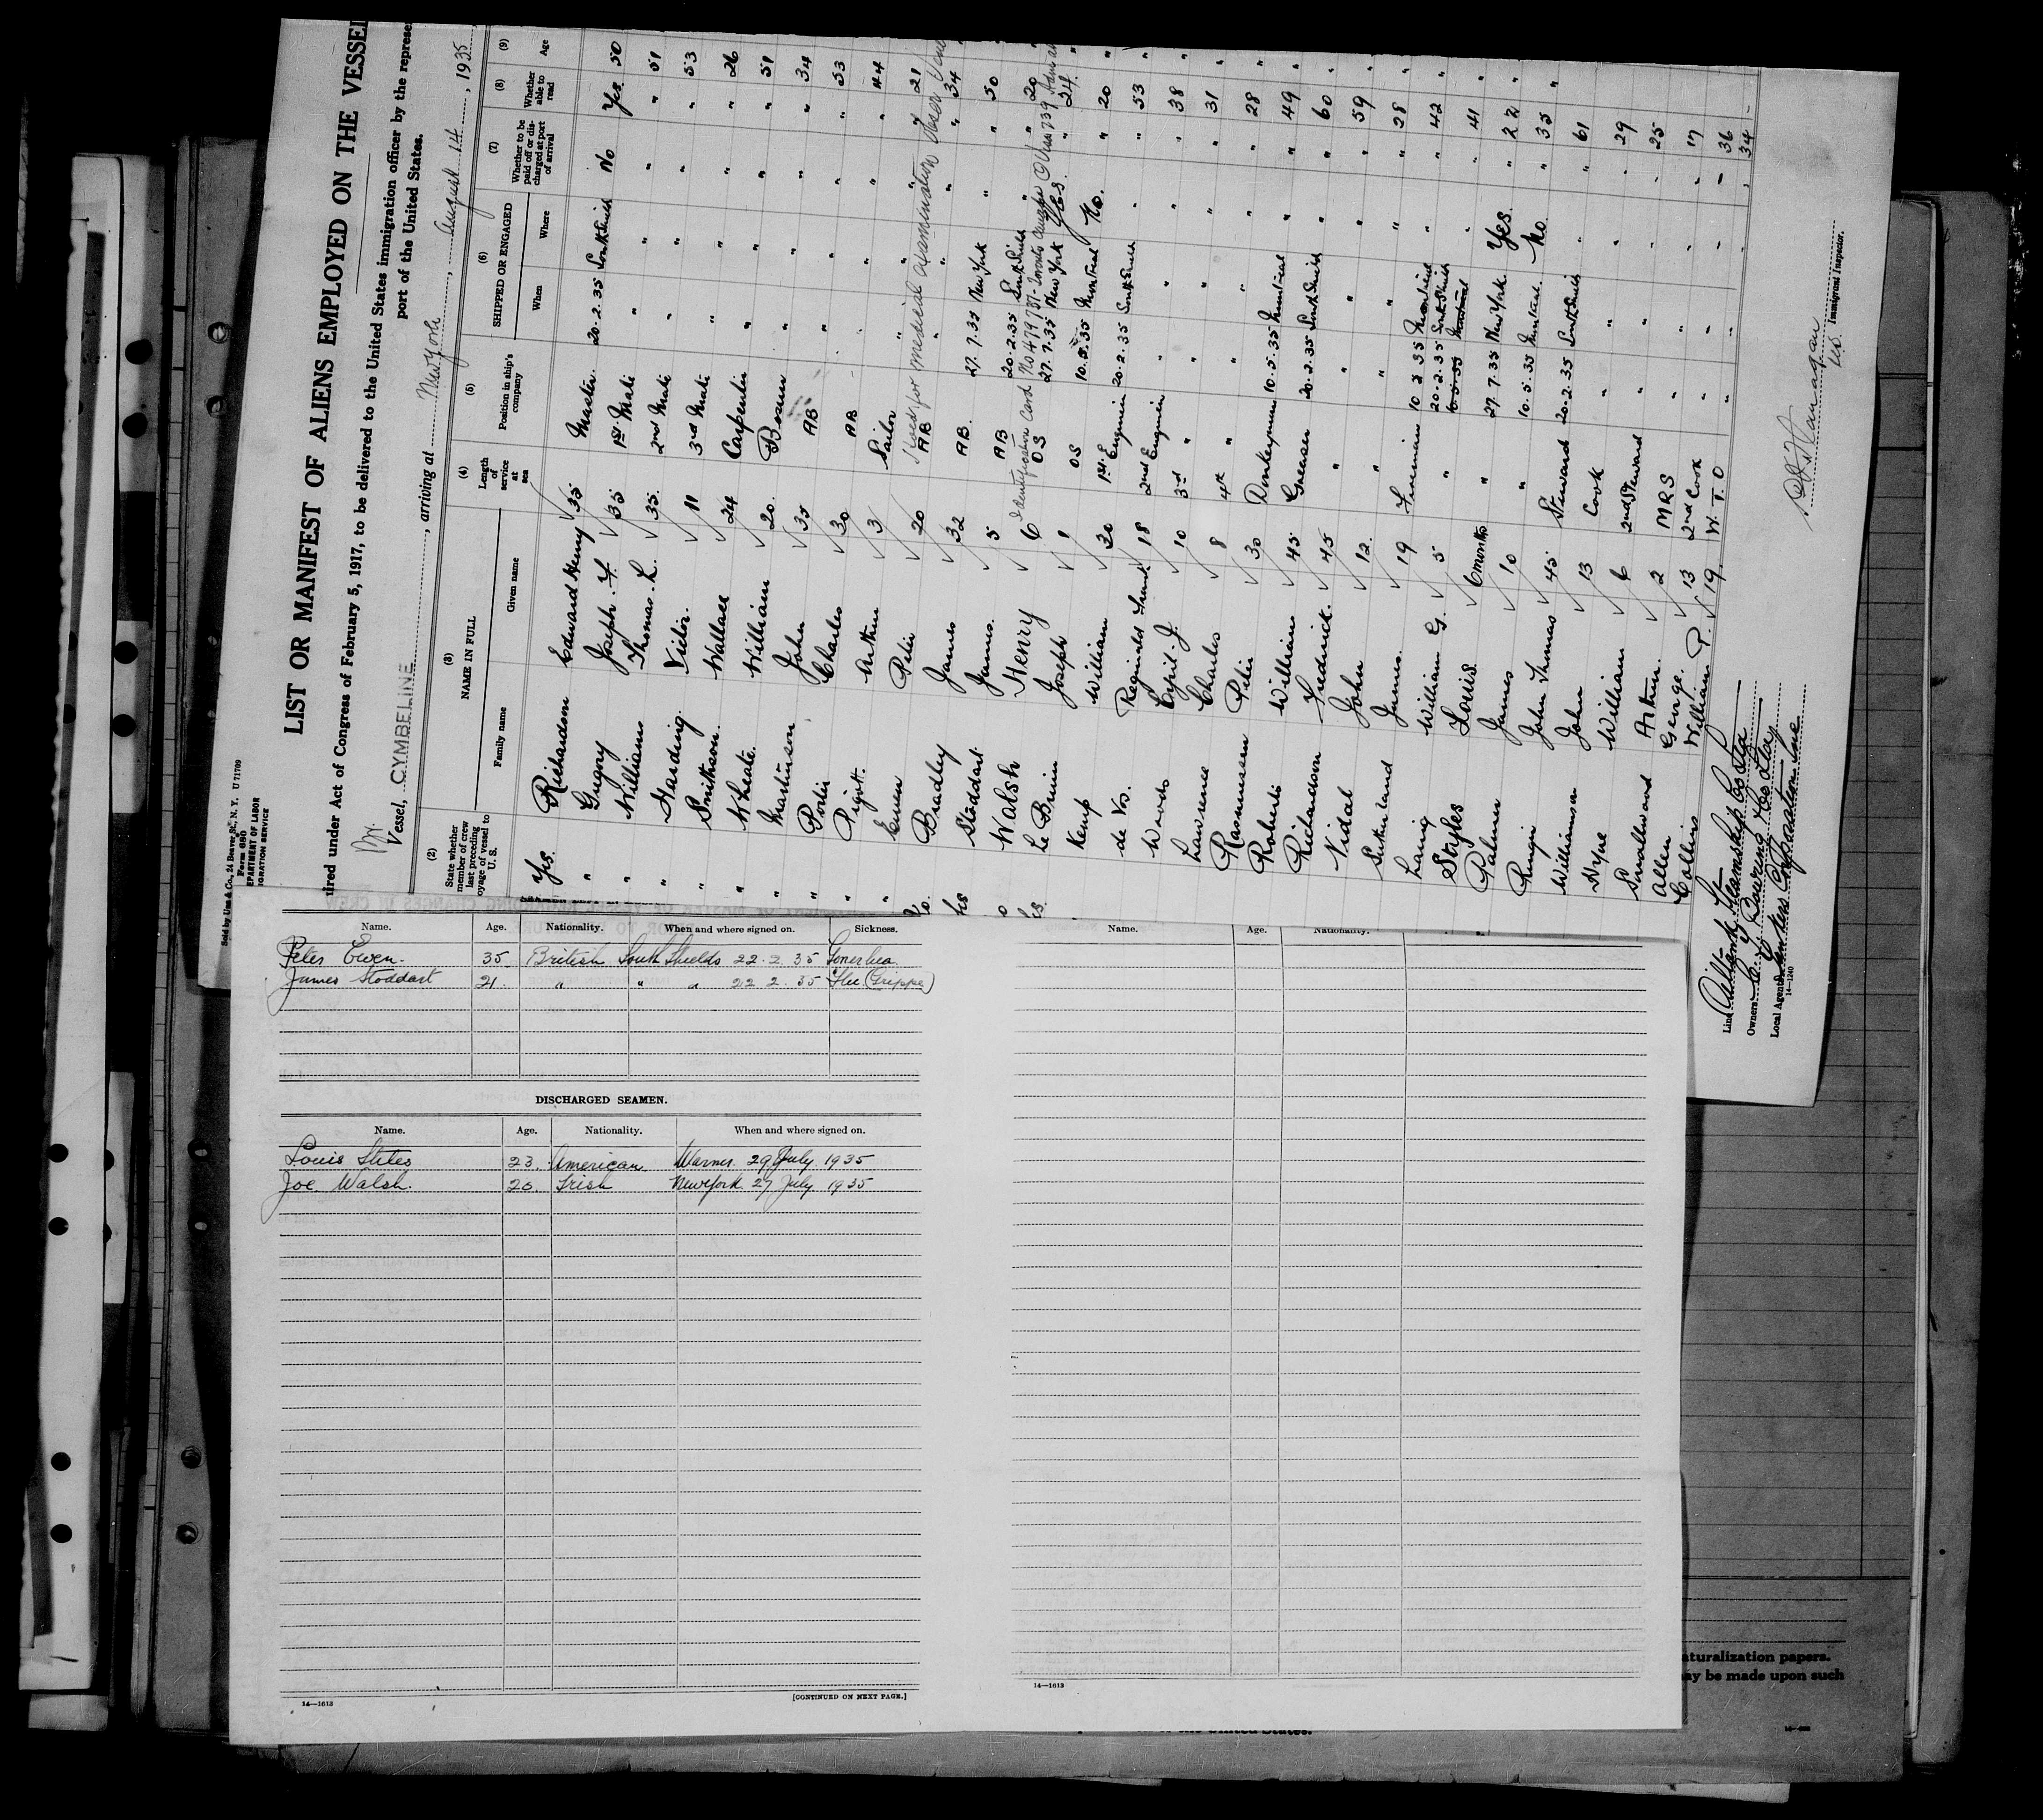 Sold by Unz & Co., 24 Beaver St., N. Y. U 71709
Form 680
EPARTMENT OF LABOR
IGRATION SERVICE
LIST OR MANIFEST OF ALIENS EMPLOYED ON THE VESSEL
uired under Act of Congress of February 5, 1917, to be delivered to the United States immigration officer by the represe
port of the United States.
Br.
Vessel, CYMBELINE, arriving at New York, August 14, 1935
(2) (3) (4) (5) (6) (7) (8) (9)
State whether member of crew last preceding voyage of vessel to U. S.
NAME IN FULL
Family name Given name
Length of service at sea
Position in ship's company
SHIPPED OR ENGAGED
When Where
Whether to be paid off or discharged at port of arrival
Whether able to read
Age
Yes. Richardson Edward Henry 35 Master. 20.2.35 South Shields No Yes 50
" Gregory Joseph F. 35 1st Mate " " " " 51
" Williams Thomas L. 35 2nd Mate " " " " 53
" Harding Victor 11 3rd Mate " " " " 26
" Smithson. Wallace 24 Carpenter " " " " 51
" Wheate. William 20 Bosun " " " " 34
" Martinson John 35 AB " " " " 53
" Porter Charles 30 AB " " " " 44
" Pigott. Arthur 3 Sailor " " " " 21
Ewen Peter 20 AB " " " " 34
Bradley James 32 AB. 27.7.35 New York " " 50
Stoddart James. 5 AB 20.2.35 South Shields " " 20
Walsh Henry Joseph 6 OS 27.7.35 New York Yes. " 24
Le Brun 1 OS 10.5.35 Montreal No. " 20
Kemp William 30 1st Engineer 20.2.35 South Shields " " 53
de Vos. Reginald Frank 18 2nd Engineer " " " " 38
Wards Cyril J. 10 3rd " " " " " 31
Lawrence Charles 8 4th " " " " " 28
Rasmussen Peter 30 Donkeyman 10.5.35 Montreal " " 49
Roberts William 45 Greaser 20.2.35 South Shields " " 60
Richardson Fredrick. 45 " " " " " 59
Vidal John 12 " " " " " 28
Sutherland James. 19 Fireman " " 42
Laing William G. 5 " 20.2.35 South Shields " " 41
Styles Louis 6 months " 27.7.35 New York Yes. " 22
Palmer James 10 " 10.5.35 Montreal. No " 35
Ringi John Thomas 45 Steward 20.2.35 South Shields " " 61
Williamson John 13 Cook " " " 29
Wyne William 6 2nd Steward " " " 25
Smallwood Arthur. 2 MRS " " " 17
Allen George. 13 2nd Cook " " " 36
Collins William P. 19 W. T. O " " " 34
Held for medical examination
Identification Card No 419731
Line Steamship Co Ltd
Owners Bowring
Local Agents
14—1240
Immigrant Inspector.
Name. Age. Nationality. When and where signed on. Sickness.
Peter Ewen. 35 British South Shields 22.2.35 Gonerhea
James Stoddart 21. " " " 22 2. 35 Flu (Grippe)
DISCHARGED SEAMEN.
Name. Age. Nationality. When and where signed on.
Louis Stiles 23. American Warner. 29 July. 1935
Joe. Walsh. 20. Irish New York 27 July 1935
14—1613
[CONTINUED ON NEXT PAGE.]
Name. Age. Nationality.
14—1613
aturalization papers.
ay be made upon such